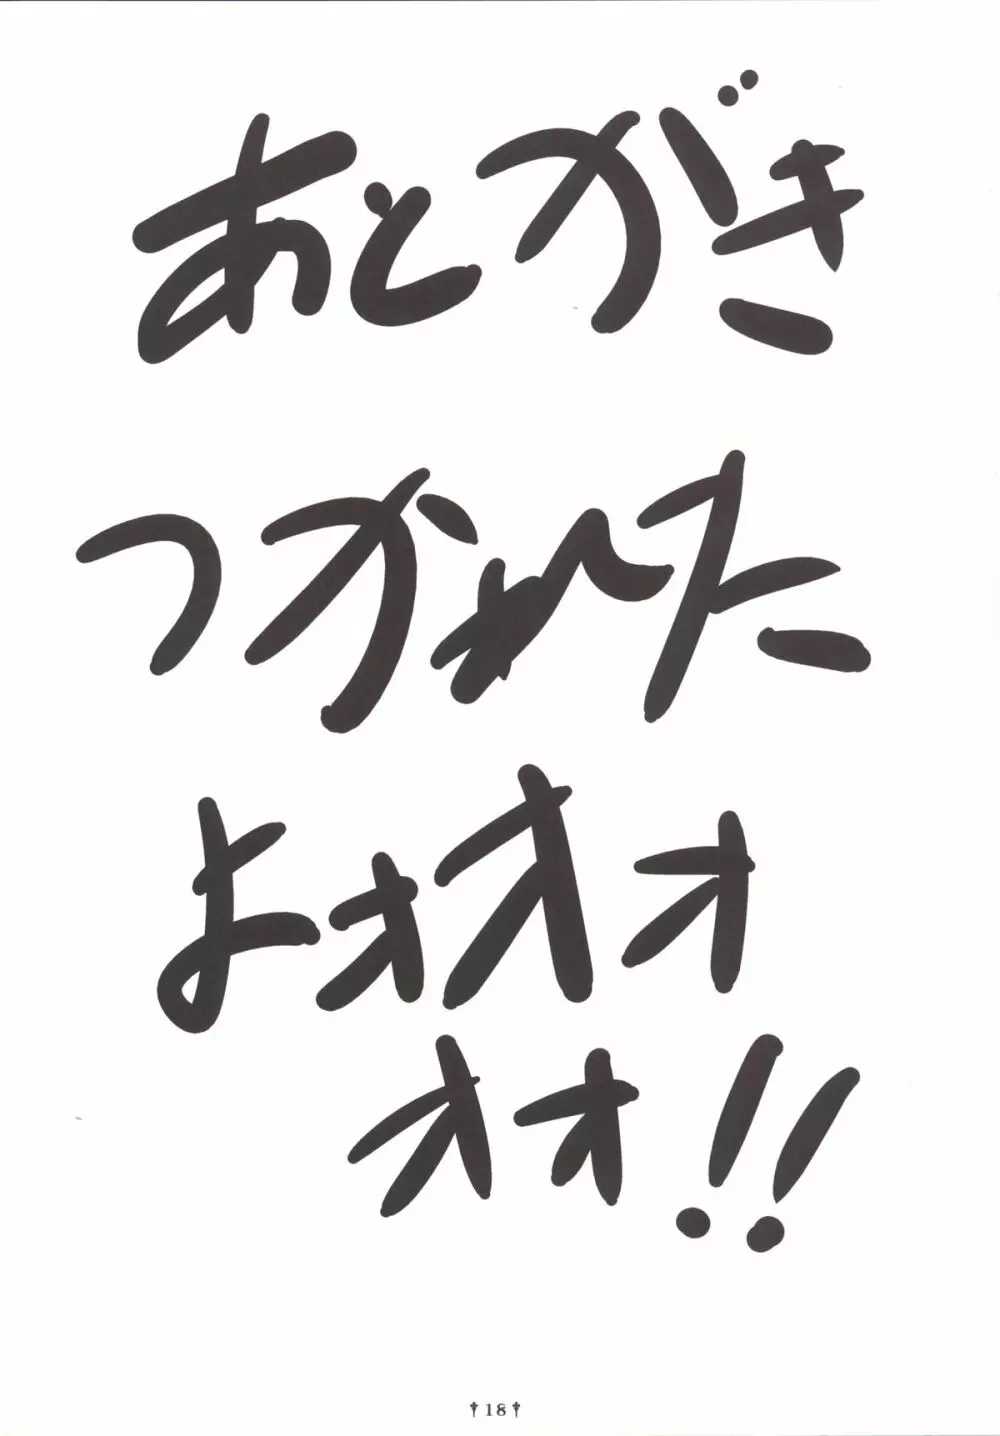 あとがき
つかれた
よォオオ
オオ!!
18